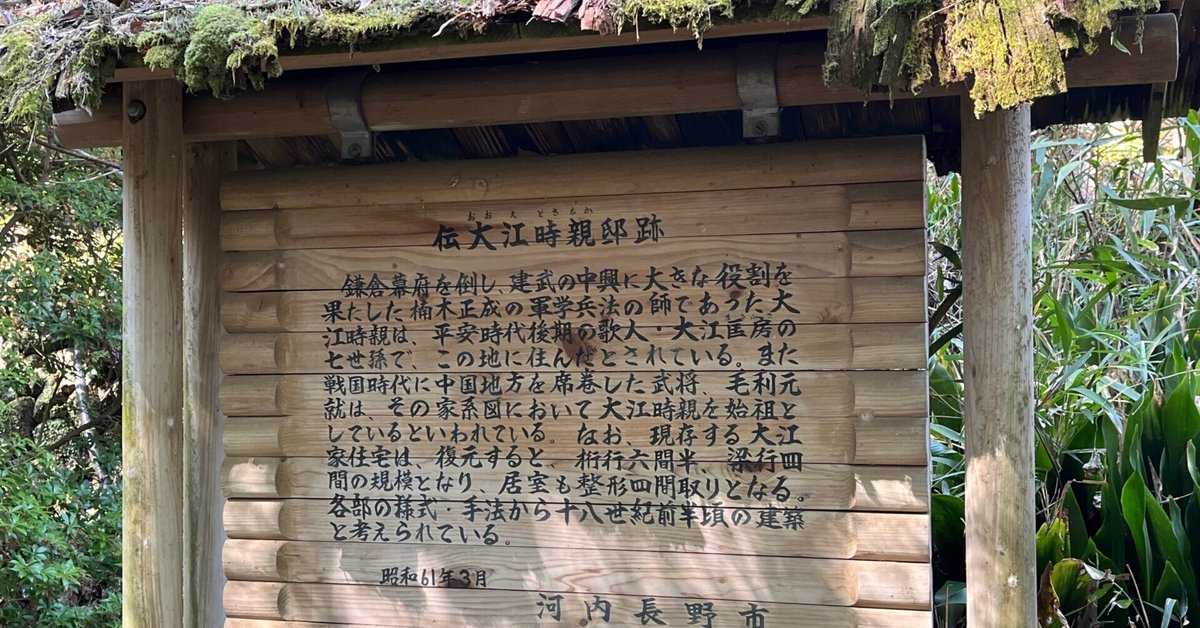 おおえ ときちか
伝大江時親邸跡
鎌倉幕府を倒し、建武の中興に大きな役割を
果たした楠木正成の軍学兵法の師であった大
江時親は、平安時代後期の歌人・大江匡房の
七世孫で、この地に住んだとされている。また
戦国時代に中国地方を席巻した武将、毛利元
就は、その家系図において大江時親を始祖と
しているといわれている。なお、現存する大江
家住宅は、復元すると、桁行六間半、梁行四
間の規模となり、居室も整形四間取りとなる。
各部の様式・手法から十八世紀前半頃の建築
と考えられている。
昭和61年3月
河内長野市